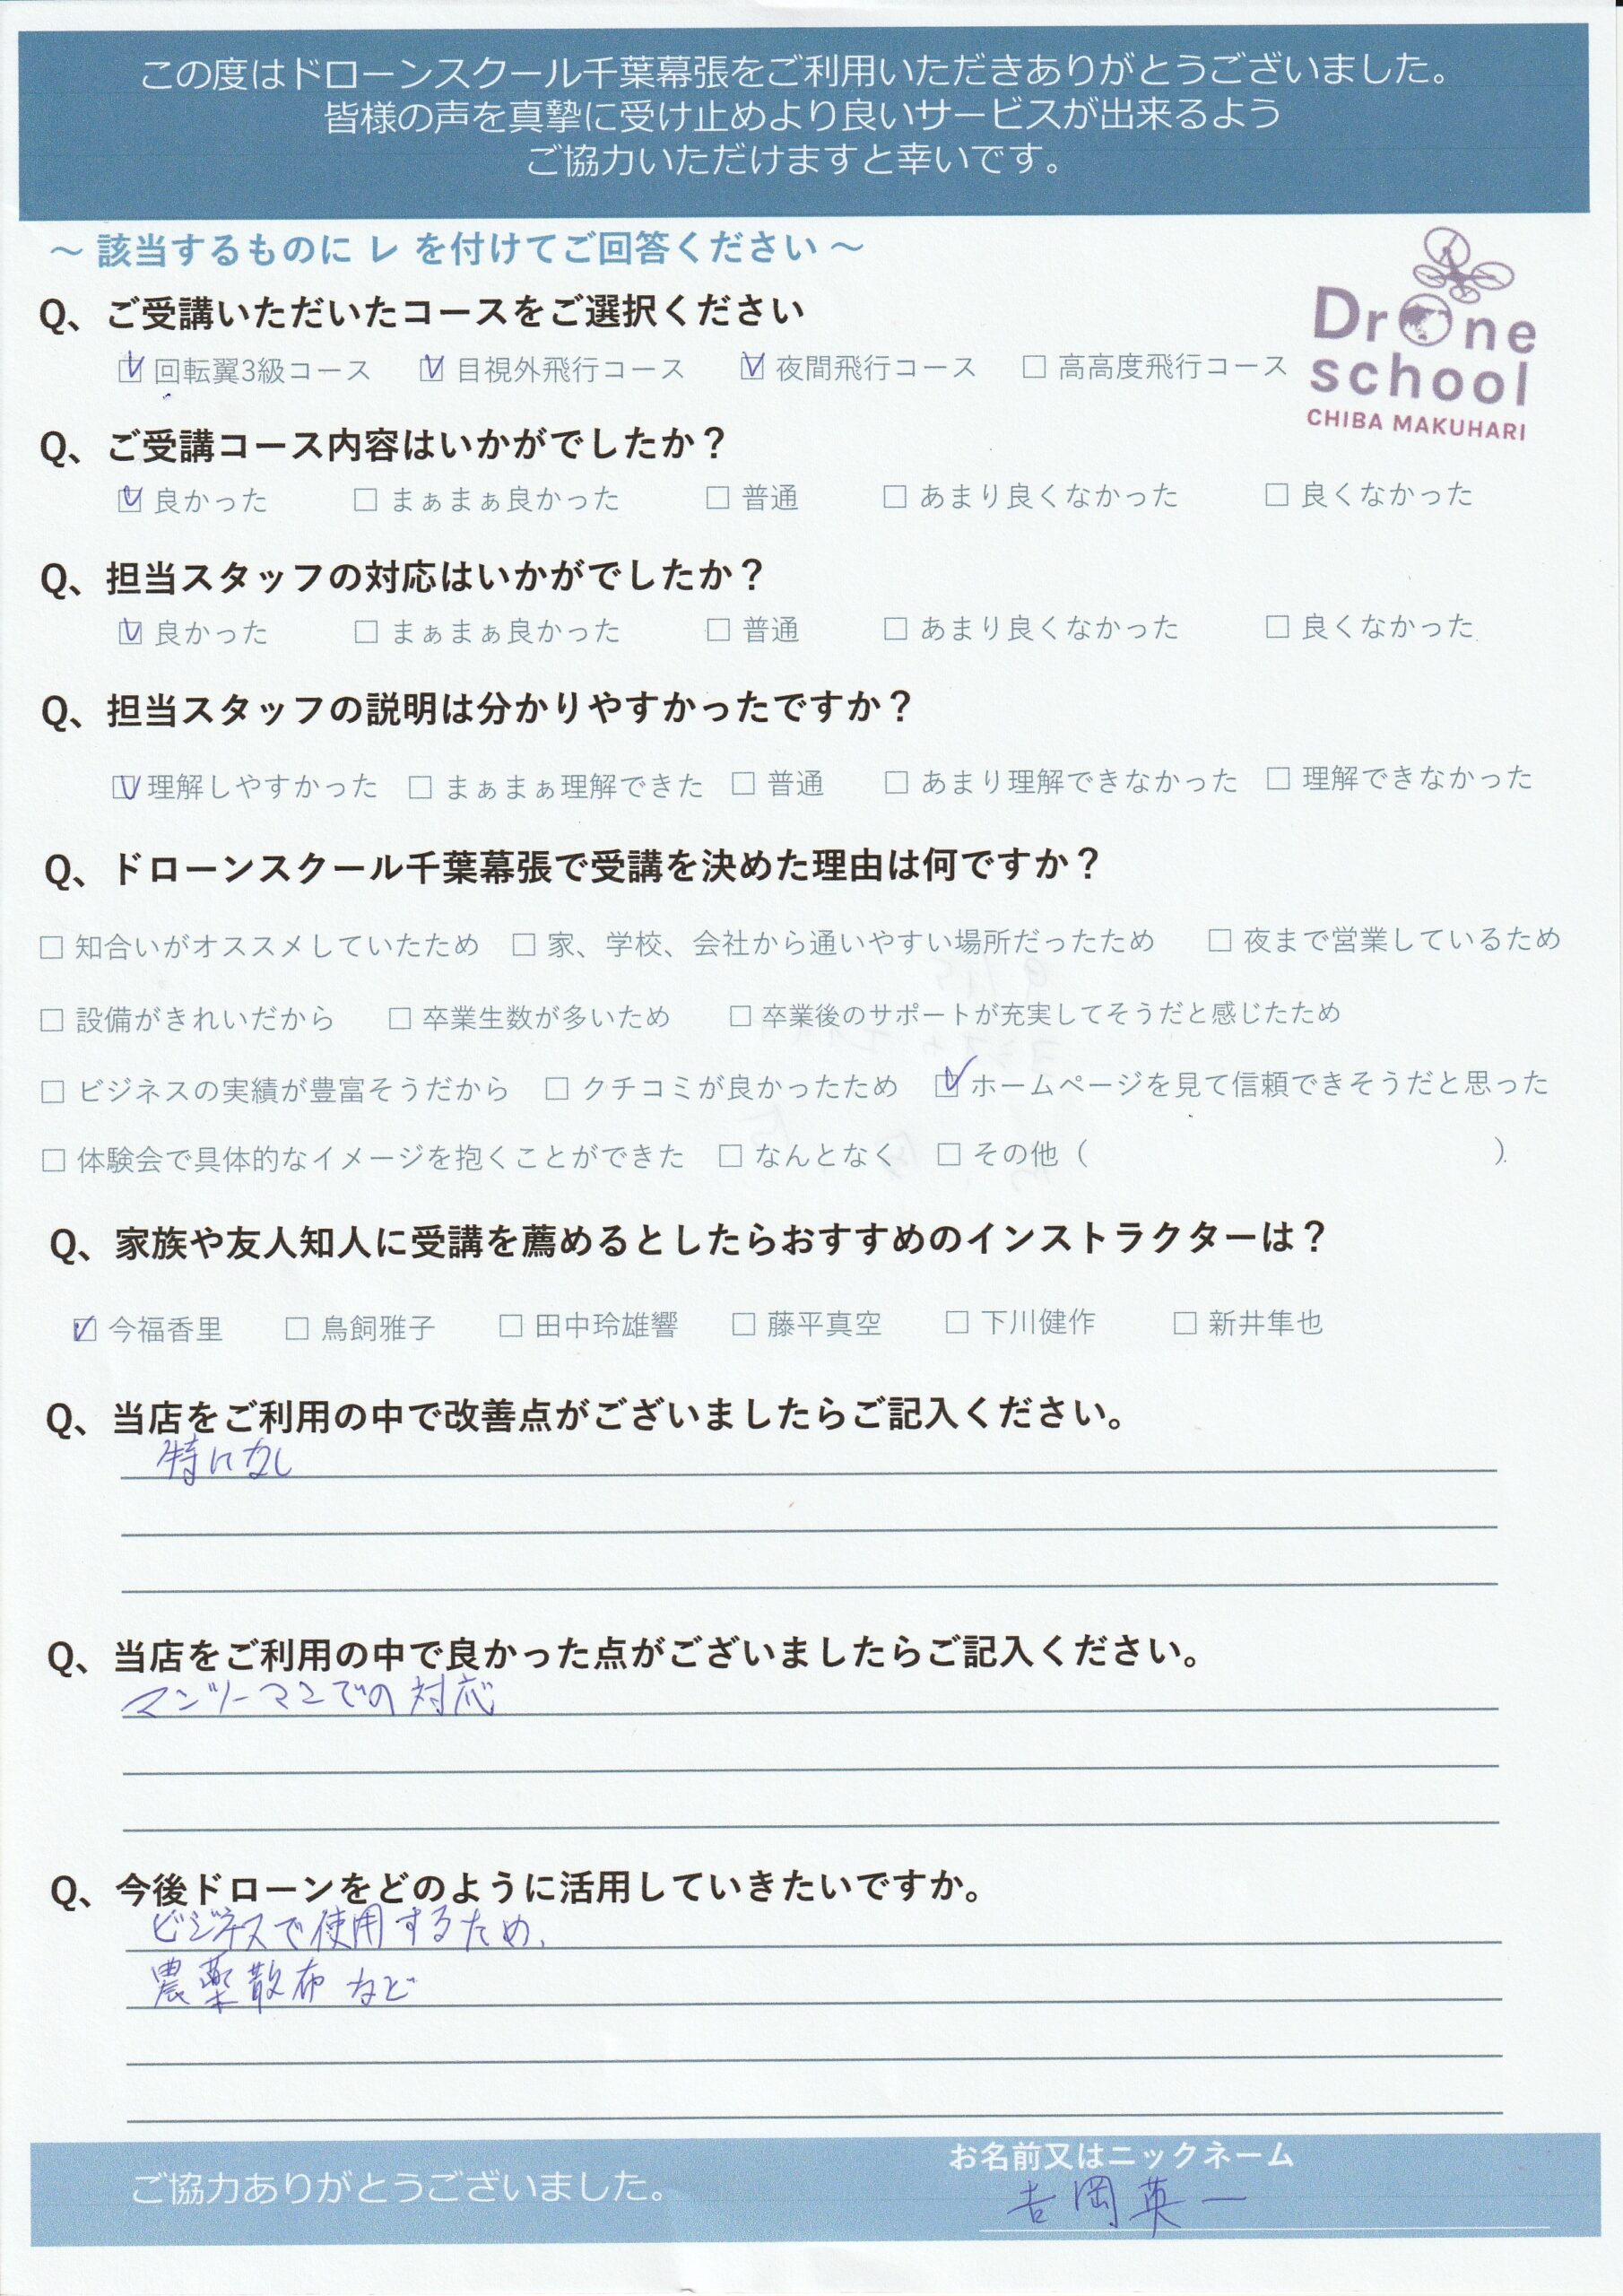 この度はドローンスクール千葉幕張をご利用いただきありがとうございました。
皆様の声を真摯に受け止めより良いサービスが出来るよう
ご協力いただけますと幸いです。
～ 該当するものに レ を付けてご回答ください ～
Drone
school
CHIBA MAKUHARI
Q、ご受講いただいたコースをご選択ください
☑ 回転翼3級コース ☑ 目視外飛行コース ☑ 夜間飛行コース □ 高高度飛行コース
Q、ご受講コース内容はいかがでしたか？
☑ 良かった □ まぁまぁ良かった □ 普通 □ あまり良くなかった □ 良くなかった
Q、担当スタッフの対応はいかがでしたか？
☑ 良かった □ まぁまぁ良かった □ 普通 □ あまり良くなかった □ 良くなかった
Q、担当スタッフの説明は分かりやすかったですか？
☑ 理解しやすかった □ まぁまぁ理解できた □ 普通 □ あまり理解できなかった □ 理解できなかった
Q、ドローンスクール千葉幕張で受講を決めた理由は何ですか？
□ 知合いがオススメしていたため □ 家、学校、会社から通いやすい場所だったため □ 夜まで営業しているため
□ 設備がきれいだから □ 卒業生数が多いため □ 卒業後のサポートが充実してそうだと感じたため
□ ビジネスの実績が豊富そうだから □ クチコミが良かったため ☑ ホームページを見て信頼できそうだと思った
□ 体験会で具体的なイメージを抱くことができた □ なんとなく □ その他（ ）
Q、家族や友人知人に受講を薦めるとしたらおすすめのインストラクターは？
☑ 今福香里 □ 鳥飼雅子 □ 田中玲雄響 □ 藤平真空 □ 下川健作 □ 新井隼也
Q、当店をご利用の中で改善点がございましたらご記入ください。
特になし
Q、当店をご利用の中で良かった点がございましたらご記入ください。
マンツーマンでの対応
Q、今後ドローンをどのように活用していきたいですか。
ビジネスで使用するため、
農薬散布 など
ご協力ありがとうございました。
お名前又はニックネーム
吉岡英一